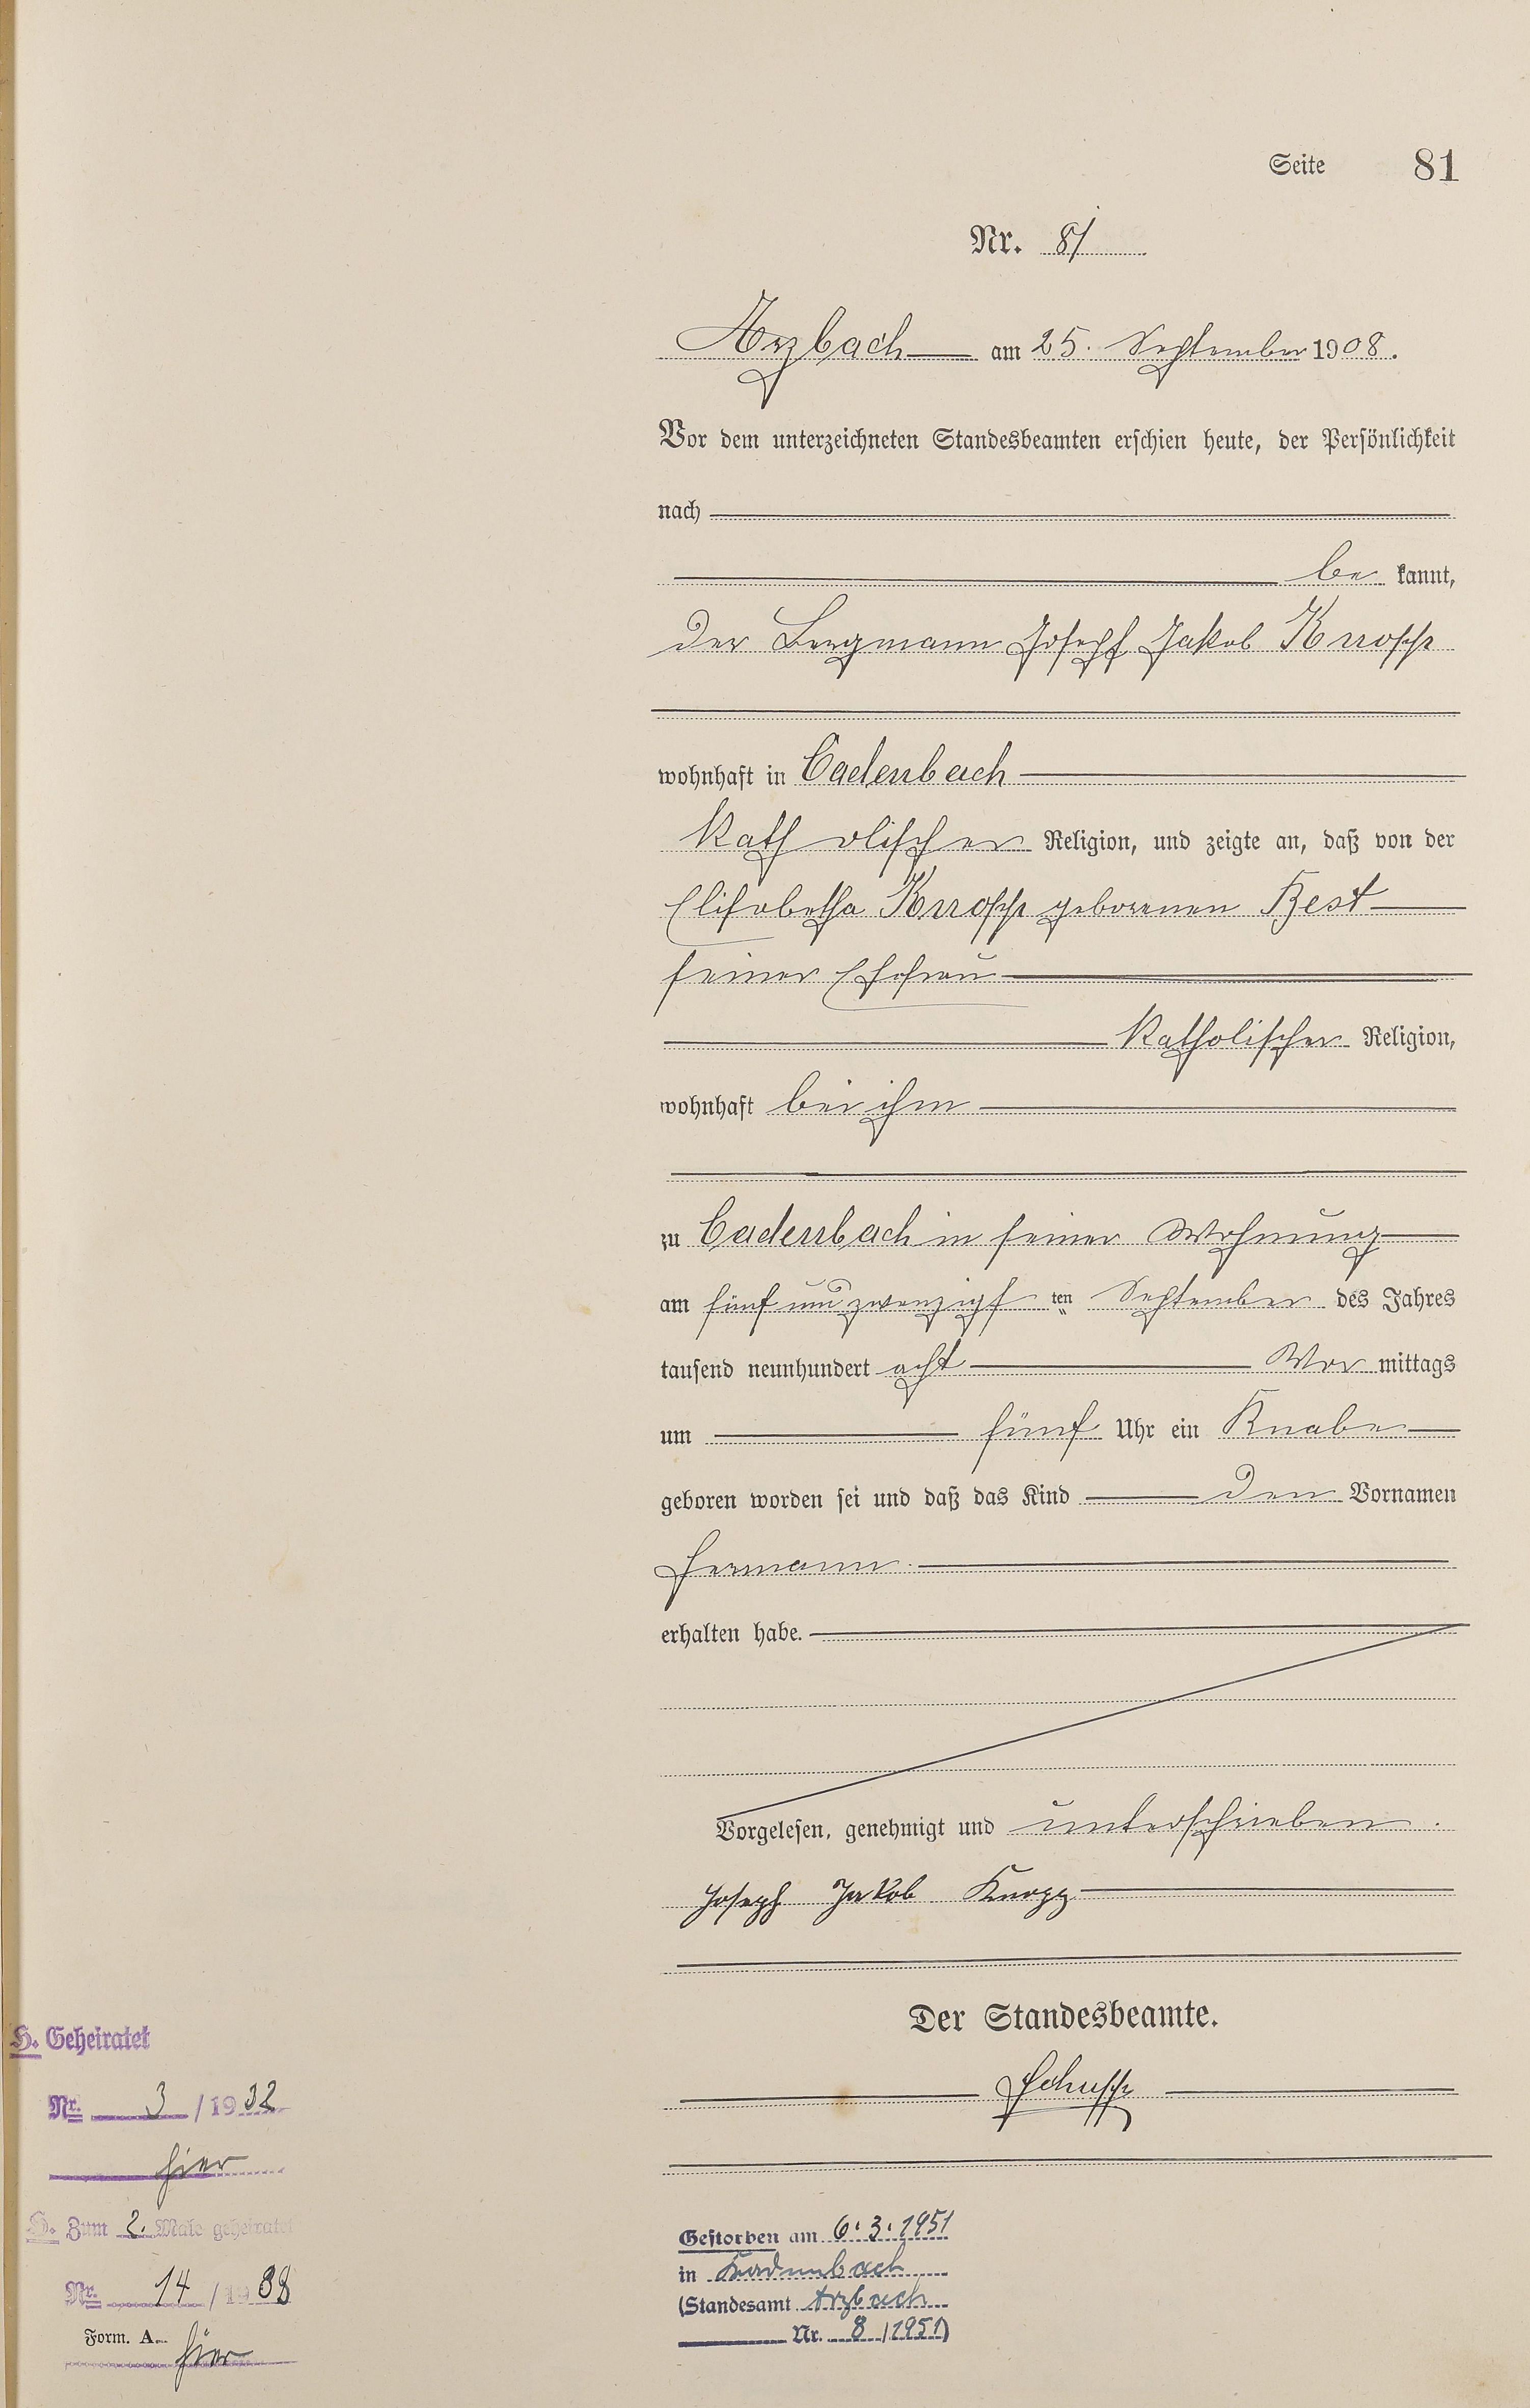 Seite 81
Nr. 81
Arzbach am 25. September 1908.
Vor dem unterzeichneten Standesbeamten erschien heute, der Persönlichkeit
nach
be kannt,
der Bergmann Joseph Jakob Knopp
wohnhaft in Cadenbach
katholischer Religion, und zeigte an, daß von der
Elisabetha Knopp geborenen Best
seiner Ehefrau
katholischer Religion,
wohnhaft bei ihm
zu Cadenbach in seiner Wohnung
am fünf und zwanzigsten September des Jahres
tausend neunhundert acht Vor mittags
um fünf Uhr ein Knabe
geboren worden sei und daß das Kind den Vornamen
Hermann
erhalten habe.
Vorgelesen, genehmigt und unterschrieben.
Joseph Jakob Knopp
Der Standesbeamte.
H. Geheiratet
Nr. 3 / 1932
hier
H. Zum 2. Male geheiratet
Nr. 14 / 1938
Form. A.
hier
Gestorben am 6.3.1951
in Kadenbach
(Standesamt Arzbach
Nr. 8 / 1951)